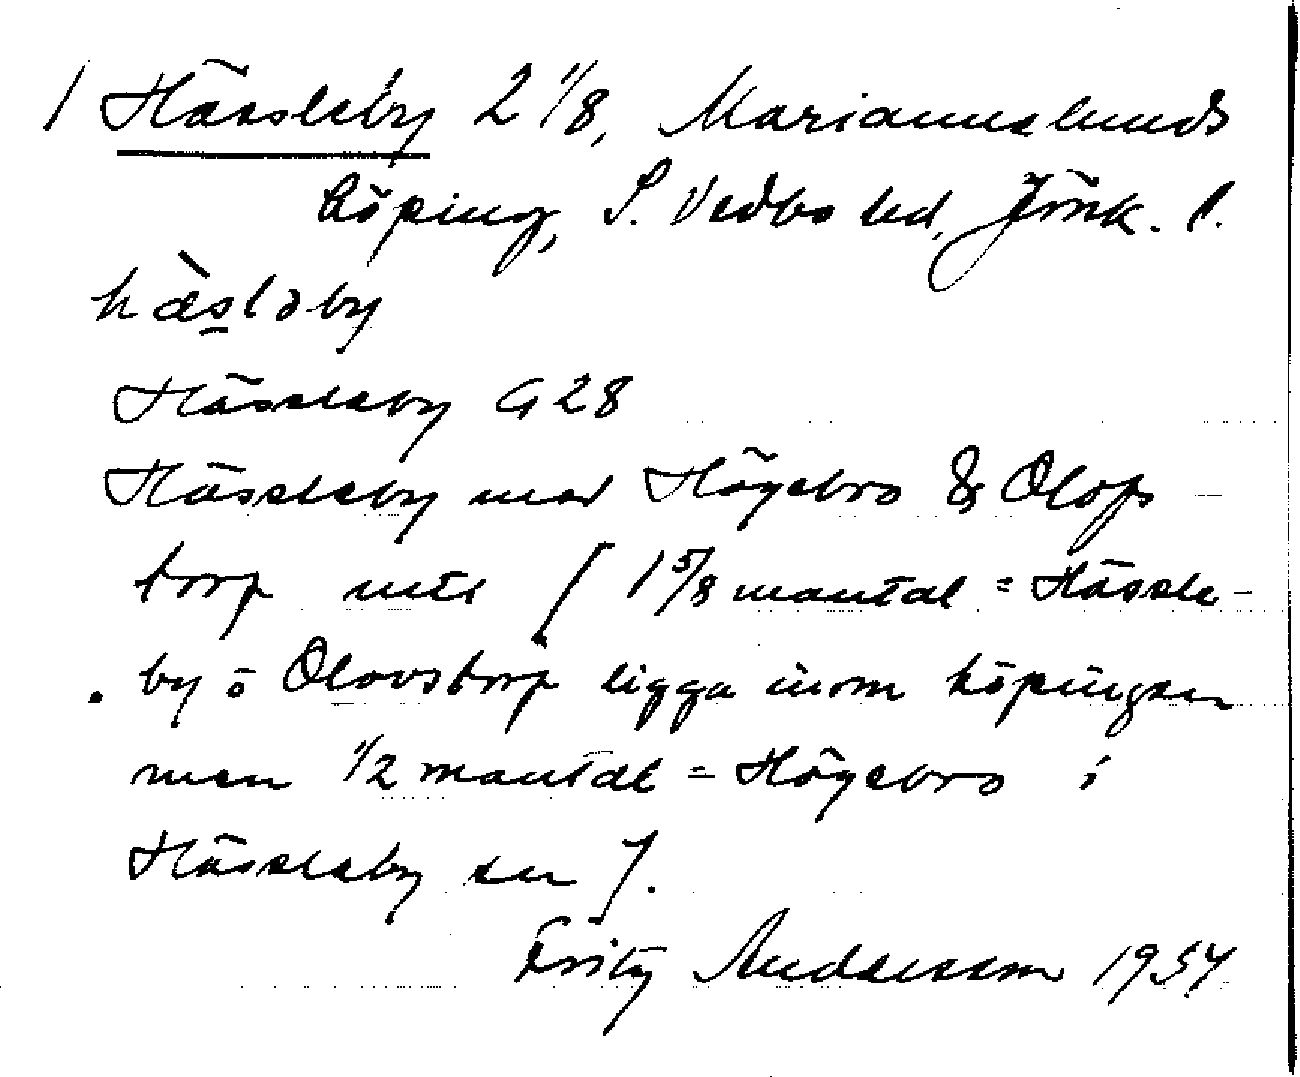 1 Hässleby 2 1/8, Mariannelunds
köping, S. Vedbo hd, Jönk. l.
hæ̀sləby
Hässleby G28
Hässleby med Högebro & Olofs-
torp
[1 5/8 mantal = Hässle-
by o Olovstorp ligga inom köpingen
men 1/2 mantal = Högebro i
Hässleby sn].
Fritz Andersson 1954